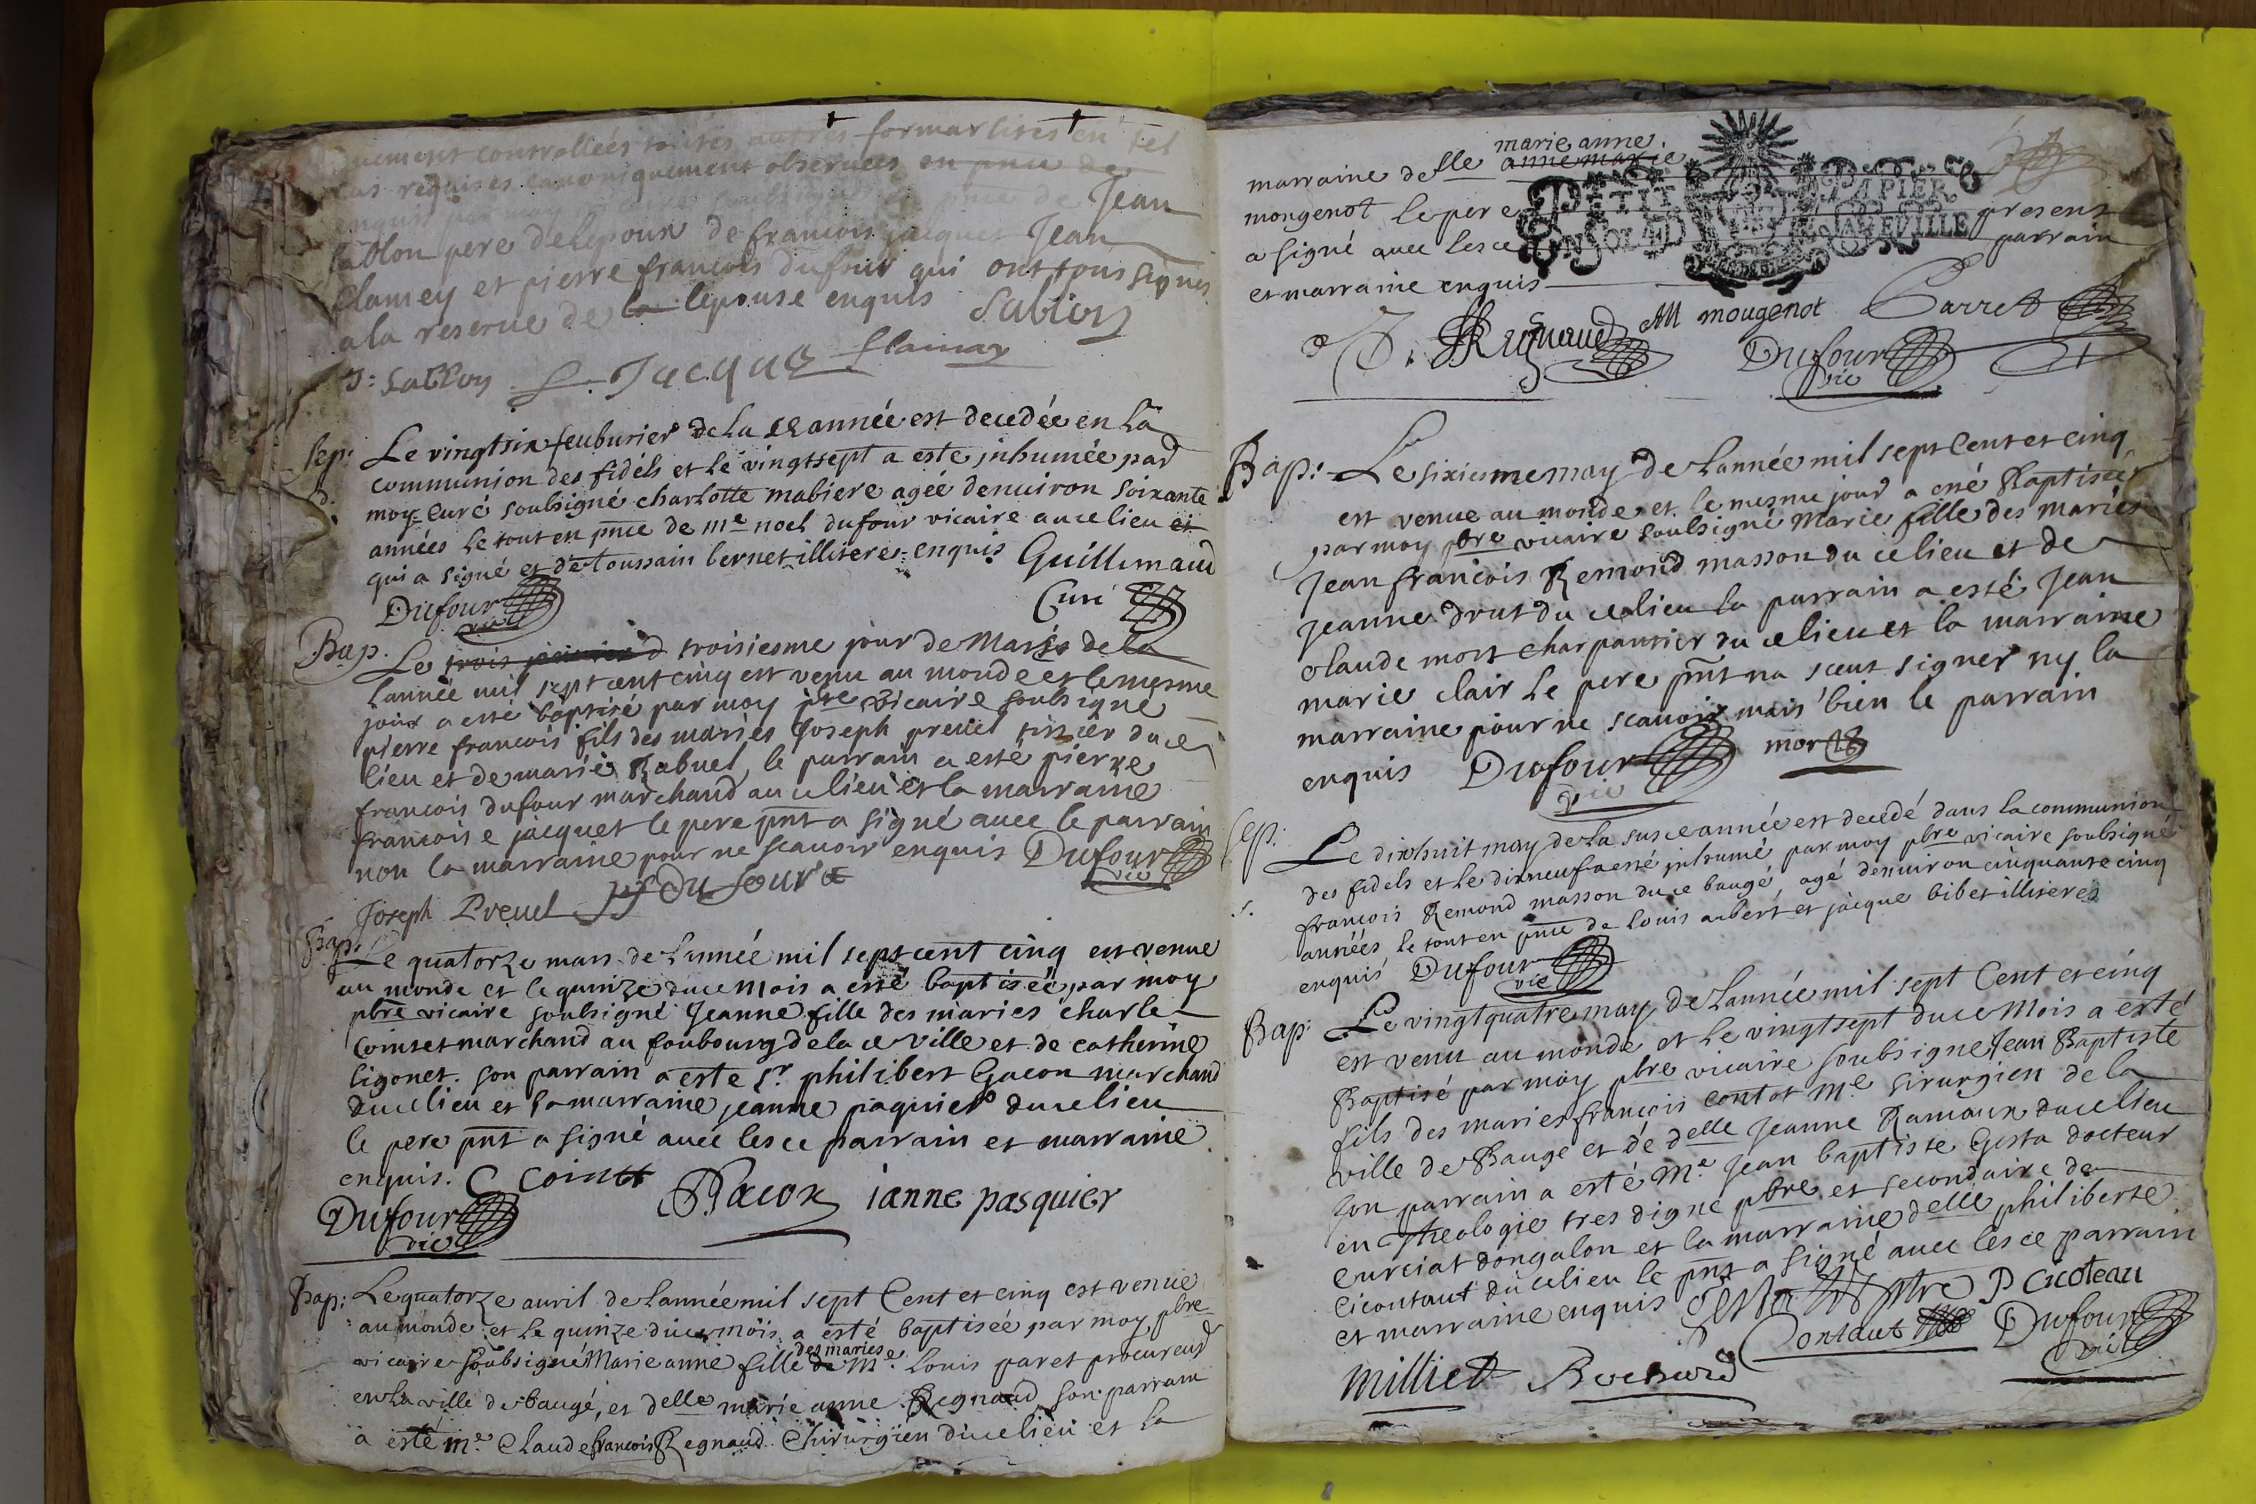 nement controlleés toutes autres formalites en tel
cas requises canoniquement observees en pnce de
Jean
sablon pere delepoux de francois jacquet Jean
clamey et pierre francois dufour qui ont tous signés
a la reserve de la lepouse enquis Sablon
J: Sablon f. Jacque flamay
Sep: Le vingtsix feuburier de la ce année est decedée en la
communion des fidéls et le vingtsept a este inhumée par
moy Curé soubsigné charlotte mabiere agée denuiron soixante
années le tout en pnce de me noel dufour vicaire au ce lieu et
qui a signé et de toussain bernet illiteres enquis Guillemaud
Dufour vic Curé
Bap. Le trois troisiesme jour de Mars de la
Lannée mil sept cent cinq est venu au monde et le mesme
jour a esté baptisé par moy pbre vicaire soubsigne
pierre francois fils des mariés Joseph preuel tissier du ce
lieu et de marie Rabuel, le parrain a esté pierre
francois dufour marchand au ce lieu et la marraine
francoise jacquet le pere pnt a signé avec le parrain
non la marraine pour ne scavoir enquis Dufour vic
Joseph Preuel pf Dufour
Bap. Le quatorze mars de Lannée mil sept cent cinq est venue
au monde et le quinze du ce mois a esté baptisée par moy
pbre vicaire soubsigné Jeanne fille des mariés charle
Cointet marchand au foubourg de la ce ville et de catherine
ligonet. son parrain a este Sr philibert Gacon marchand
du ce lieu et sa marraine jeanne paquier du ce lieu
le pere pnt a signé avec les ce parrain et marraine
enquis. C Cointet
Dufour vic Gacon ianne pasquier
Bap: Le quatorze avril de Lannée mil sept Cent et cinq est venue
au monde et le quinze du ce mois a esté baptisée par moy pbre
des mariés
vicaire soubsigné Marie anne fille de Me. Louis paret procureur
en la ville de baugé, et delle marie anne Regnaud, son parrain
a esté me. Claude francois Regnaud Chirurgien du ce lieu et la
marie anne
marraine delle anne marie
mongenot le pere present
a signé avec les ce parrain
et marraine enquis
PETIT PAPIER
Regnaud AM mougenot Parret
Dufour vic
Bap: Le sixiesme may de Lannée mil sept Cent et cinq
est venue au monde et le mesme jour a esté Baptisée
par moy pbre vicaire soubsigné Marie fille des mariés
Jean francois Remond masson du ce lieu et de
jeanne drut du ce lieu la parrain a esté Jean
claude mort charpantier du ce lieu et la marraine
marie clair le pere pnt na sceut signer ny la
marraine pour ne scavoir mais bien le parrain
enquis Dufour vic mort
Sep: Le dixhuit may de la susce année est decedé dans la communion
des fidels et le dixneuf a esté inhumé, par moy pbre vicaire soubsigné
francois Remond masson du ce baugé, agé denuiron cinquante cinq
années le tout en pnce de Louis aubert et jacque bibet illiteres
enquis Dufour vic
Bap: Le vingtquatre may de Lannée mil sept Cent et cinq
est venu au monde et le vingtsept du ce Mois a esté
Baptisé par moy pbre vicaire soubsigné Jean Baptiste
fils des mariés françois contot Me sirurgien de la
ville de Baugé et de delle Jeanne Ramaux du ce lieu
son parrain a esté Me. Jean baptiste Gesta docteur
en Theologie tres digne pbre et secondaire de
curciat dongalon et la marraine delle philiberte
cicoutaut du ce lieu le pnt a signé avec les ce parrain
et marraine enquis Gesta pbre P Cicoteau
Contaut Dufour vic
Milliet Bochard